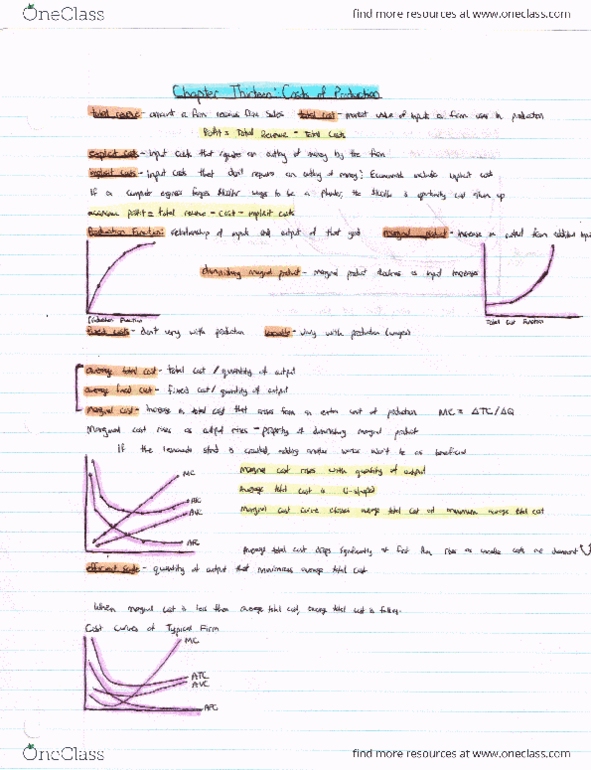 OneClass find more resources at www.oneclass.com
Chapter Thirteen: Costs of Production
total revenue - amount a firm receives from sales total cost - market value of inputs a firm uses in production
Profit = Total Revenue - Total Costs
explicit costs - input costs that require an outlay of money by the firm
implicit costs - input costs that don't require an outlay of money; Economists include implicit cost
If a computer engineer forgoes ways to be a the is opportunity cost given up
economic profit = total revenue - cost - implicit costs
Production Function: relationship of inputs and output of that good marginal product - increase in output from additional input
diminishing marginal product - marginal product declines as input increases
Production Function
Total Cost Function
fixed costs - don't vary with production variable - vary with production (wages)
average total cost - total cost / quantity of output
average fixed cost - fixed cost / quantity of output
marginal cost - increase in total cost that arises from an extra unit of production MC = ΔTC/ΔQ
Marginal cost rises as output rises - property of diminishing marginal product
If the lemonade stand is crowded, adding another worker won't be as beneficial
MC
ATC
AVC
AFC
Marginal cost rises with quantity of output
Average total cost is U-shaped
Marginal cost curve crosses average total cost at minimum average total cost
Average total cost drops significantly at first then rises as variable costs are dominant U
efficient scale - quantity of output that minimizes average total cost
When marginal cost is less than average total cost, average total cost is falling.
Cost Curves of Typical Firm
MC
ATC
AVC
AFC
OneClass find more resources at www.oneclass.com